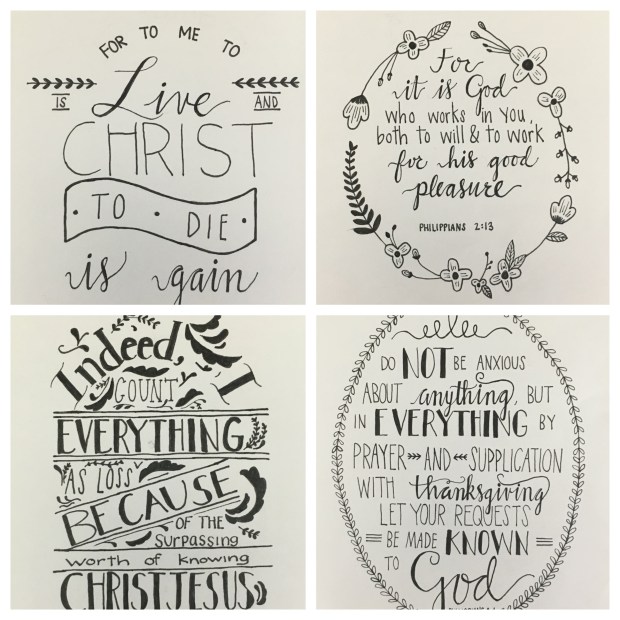 FOR TO ME TO
Live
IS AND
CHRIST
TO · DIE
is gain
For
it is God
who works in you,
both to will & to work
for his good
pleasure
PHILIPPIANS 2:13
Indeed, I
COUNT
EVERYTHING
AS LOSS
BECAUSE
OF THE
Surpassing
worth of knowing
CHRIST JESUS
DO NOT BE ANXIOUS
ABOUT anything, BUT
IN EVERYTHING BY
PRAYER AND SUPPLICATION
WITH thanksgiving
LET YOUR REQUESTS
BE MADE KNOWN
TO God